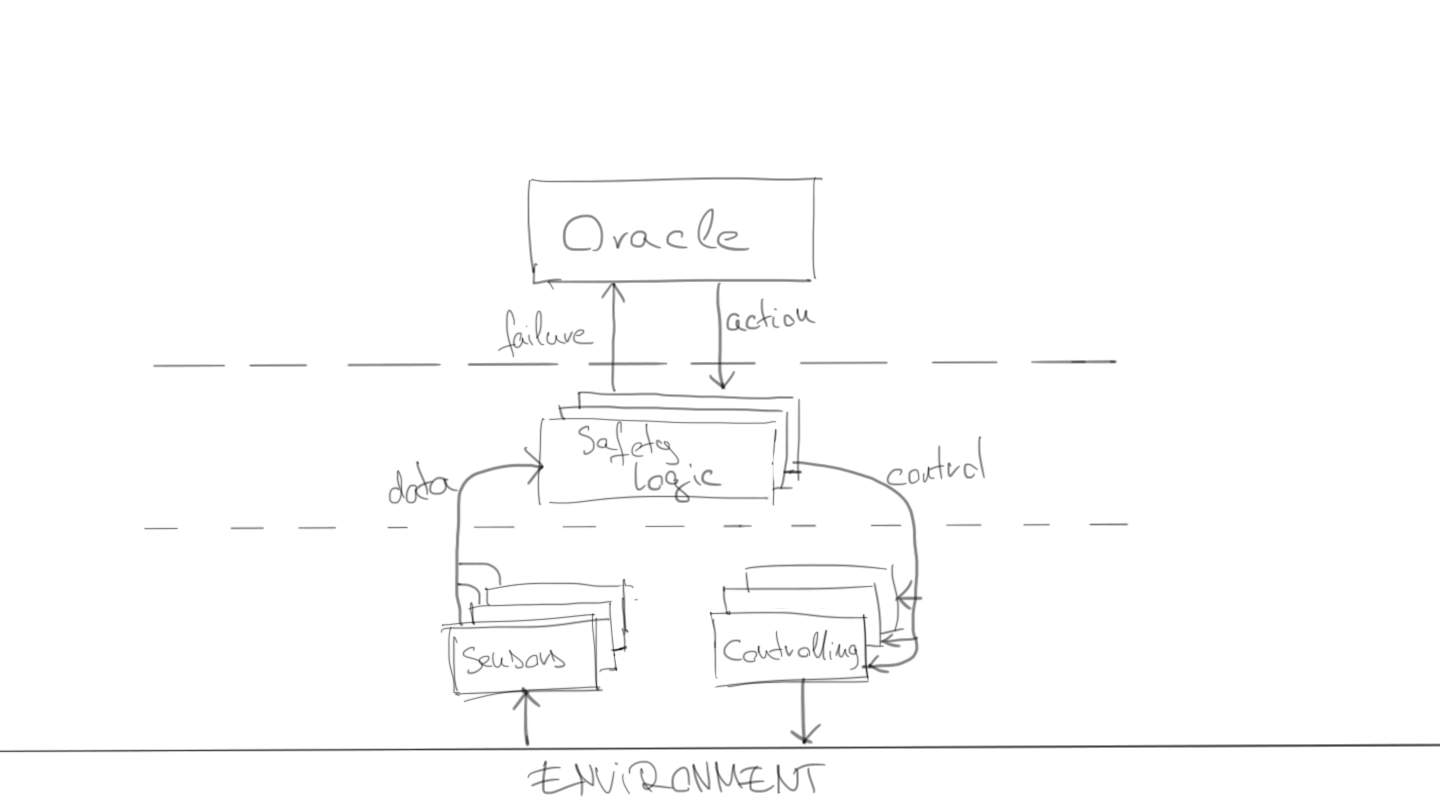 Oracle
failure
action
Safety
Logic
data
control
Sensors
Controlling
ENViRONMENT